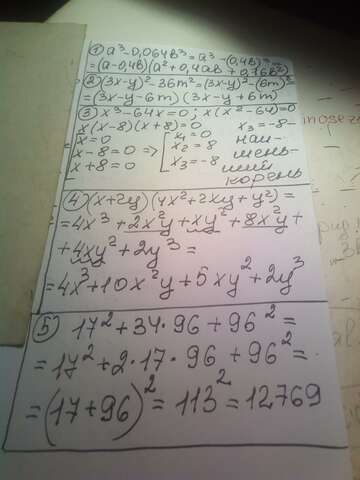 ① a³-0,064b³ = a³-(0,4b)³=
=(a-0,4b)(a²+0,4ab+0,16b²)
② (3x-y)²-36m²=(3x-y)²-(6m)²
=(3x-y-6m)(3x-y+6m)
③ x³-64x=0; x(x²-64)=0
x(x-8)(x+8)=0 x₃=-8-
x=0 x₁=0 наи-
x-8=0 => x₂=8 мень-
x+8=0 x₃=-8 ший
корень
④ (x+2y)(4x²+2xy+y²)=
=4x³+2x²y+xy²+8x²y+
+4xy²+2y³=
=4x³+10x²y+5xy²+2y³
⑤ 17²+34·96+96²=
=17²+2·17·96+96²=
=(17+96)²=113²=12769